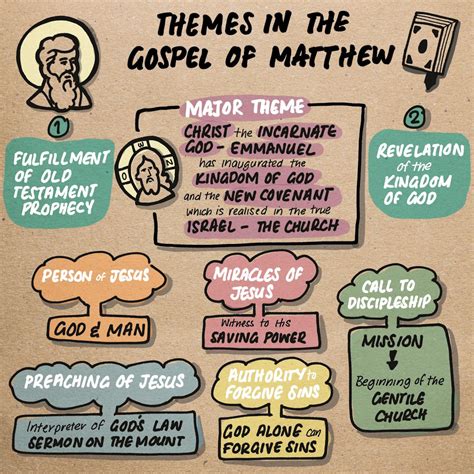 THEMES IN THE
GOSPEL OF MATTHEW
1
FULFILLMENT
OF OLD
TESTAMENT
PROPHECY
MAJOR THEME
CHRIST the INCARNATE
GOD - EMMANUEL
has inaugurated the
KINGDOM OF GOD
and the NEW COVENANT
which is realised in the true
ISRAEL - THE CHURCH
2
REVELATION
of the
KINGDOM
OF GOD
PERSON of JESUS
GOD & MAN
MIRACLES OF
JESUS
Witness to His
SAVING POWER
CALL TO
DISCIPLESHIP
MISSION
Beginning of the
GENTILE
CHURCH
PREACHING OF JESUS
Interpreter of GOD'S LAW
SERMON ON THE MOUNT
AUTHORITY to
FORGIVE SINS
GOD ALONE can
FORGIVE SINS